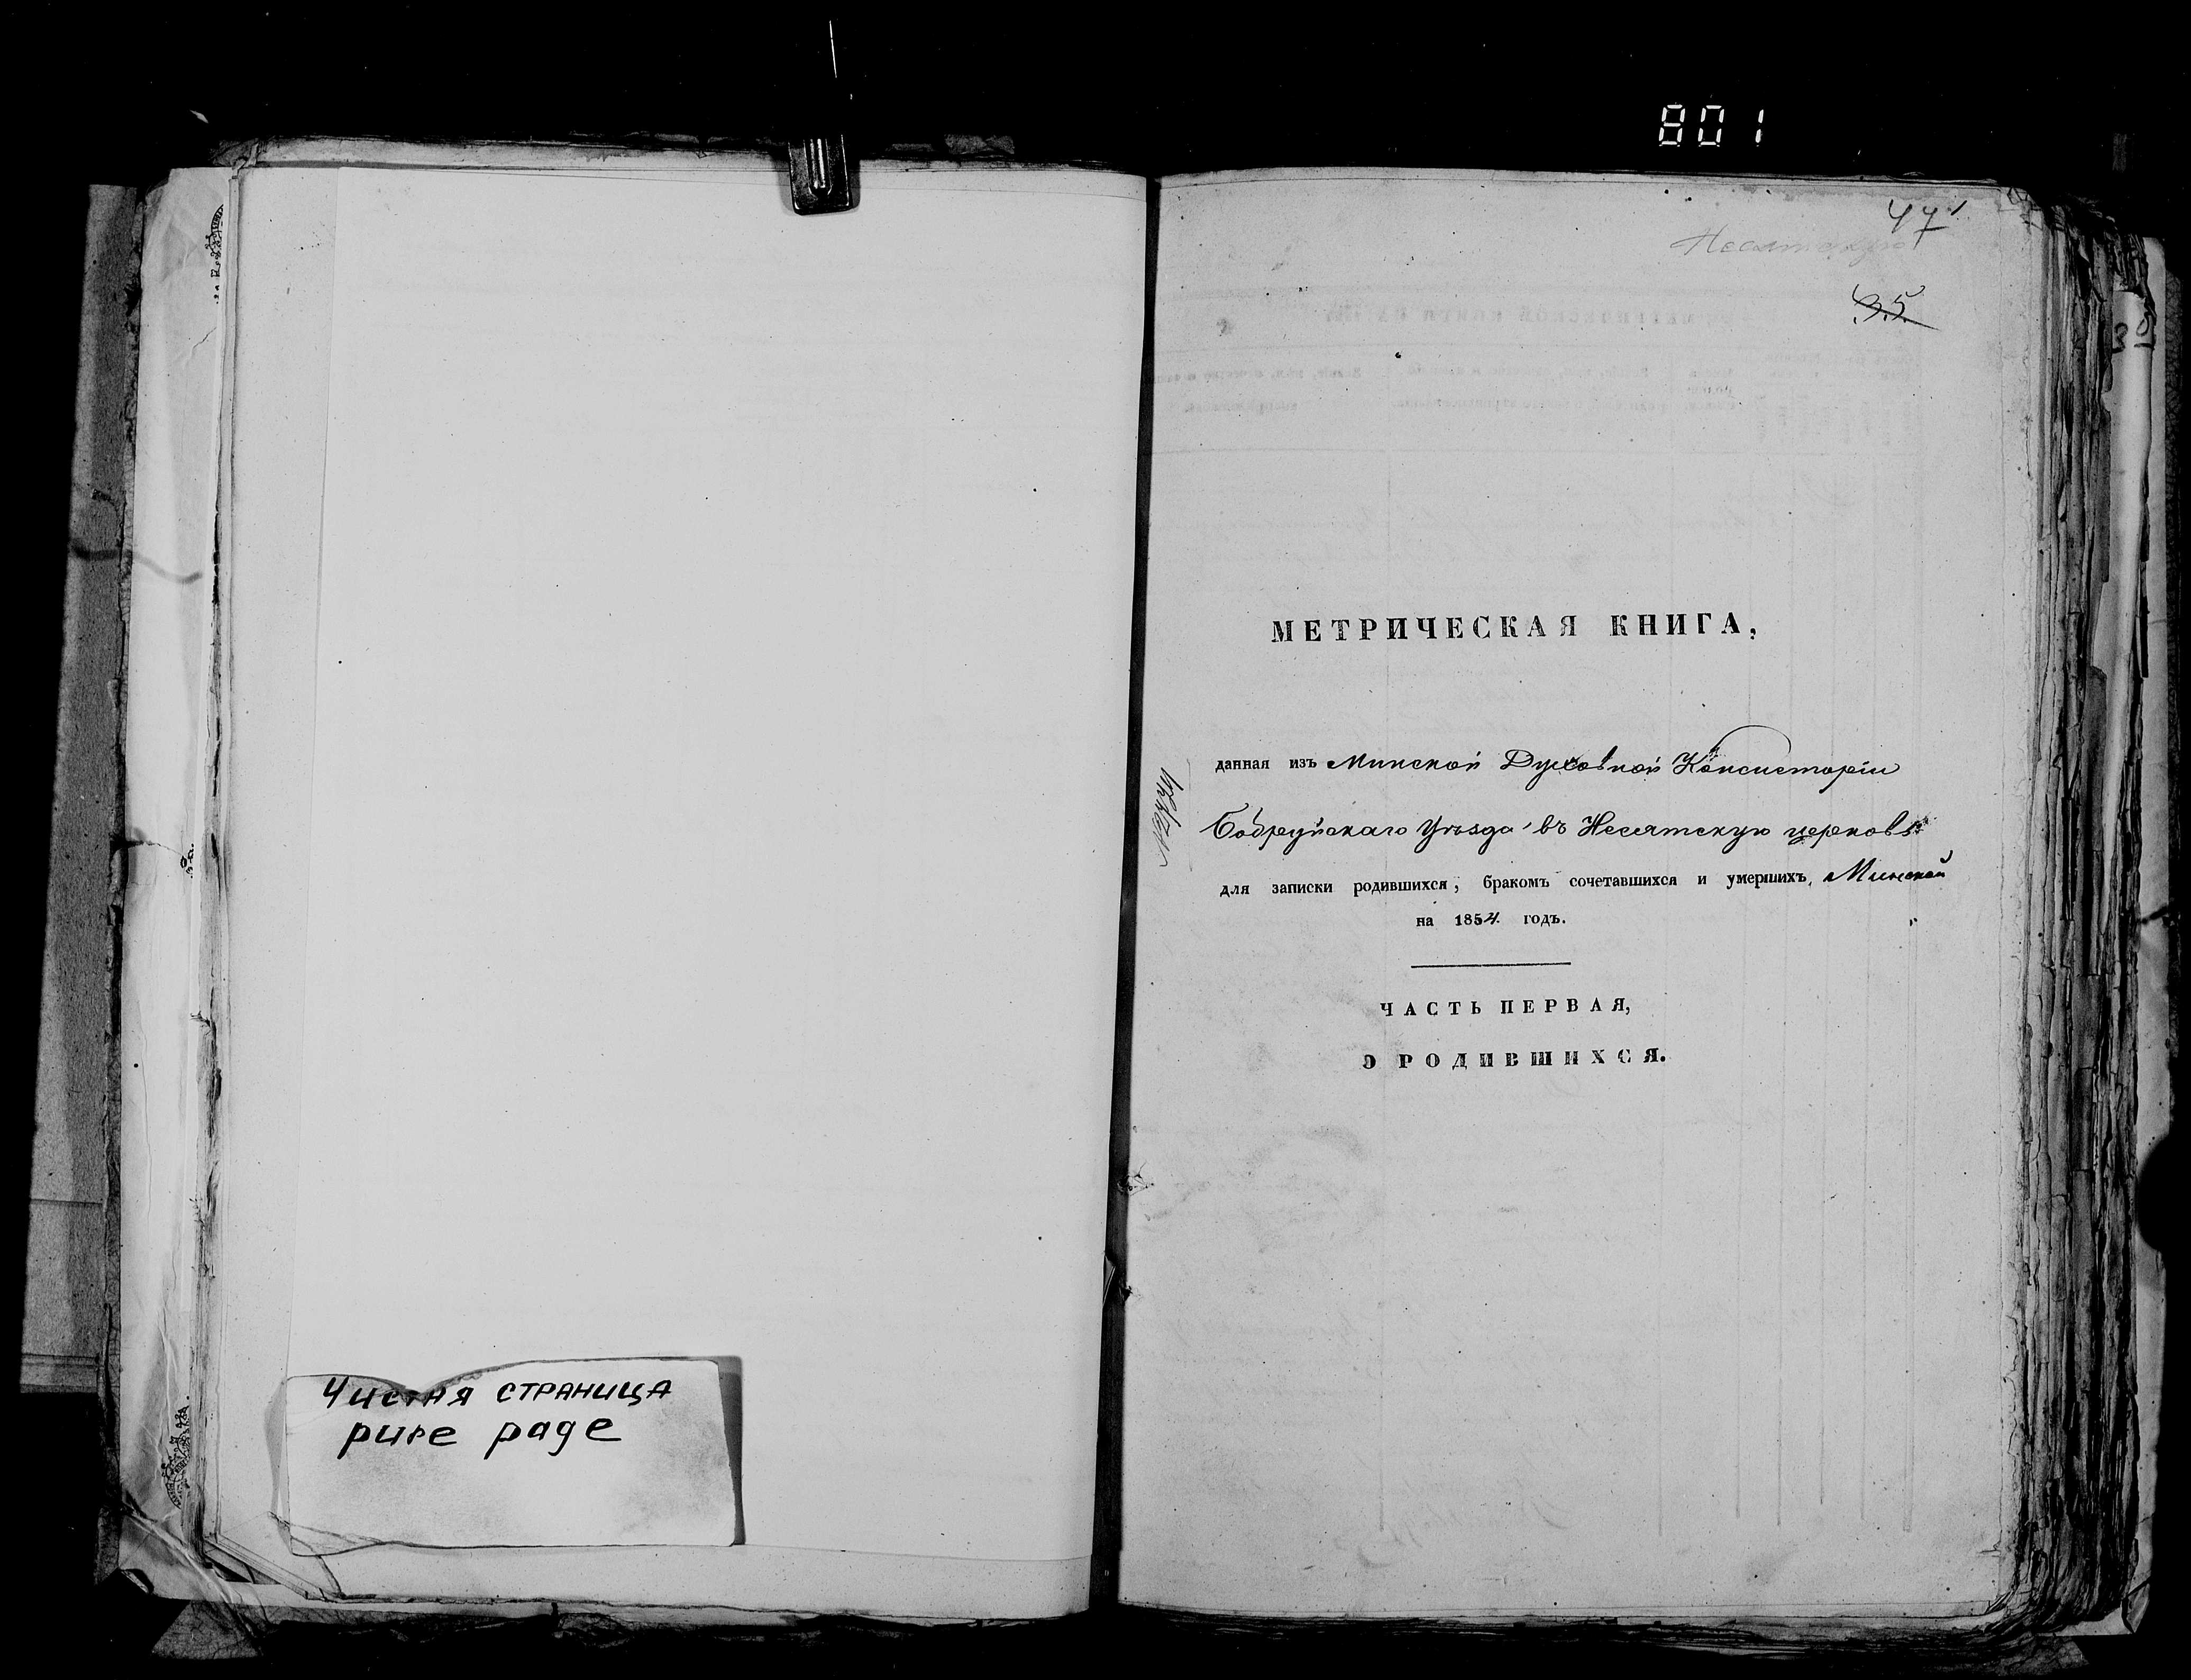 801
47
95
МЕТРИЧЕСКАЯ КНИГА,
данная изъ Минской Духовной Консисторіи
Бобруйскаго Уѣзда въ Несятскую церковь
для записки родившихся, бракомъ сочетавшихся и умершихъ, Минской
на 1854 годъ.
ЧАСТЬ ПЕРВАЯ,
О РОДИВШИХСЯ.
Чистая СТРАНИЦА
pure page